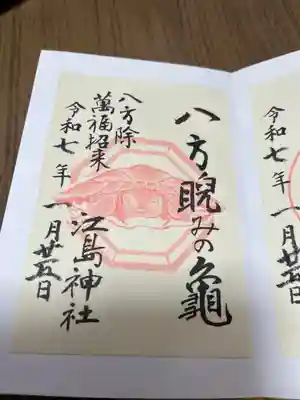 八方睨みの亀
江島神社
八方除
萬福招来
令和七年一月廿五日
令和七年一月廿五日